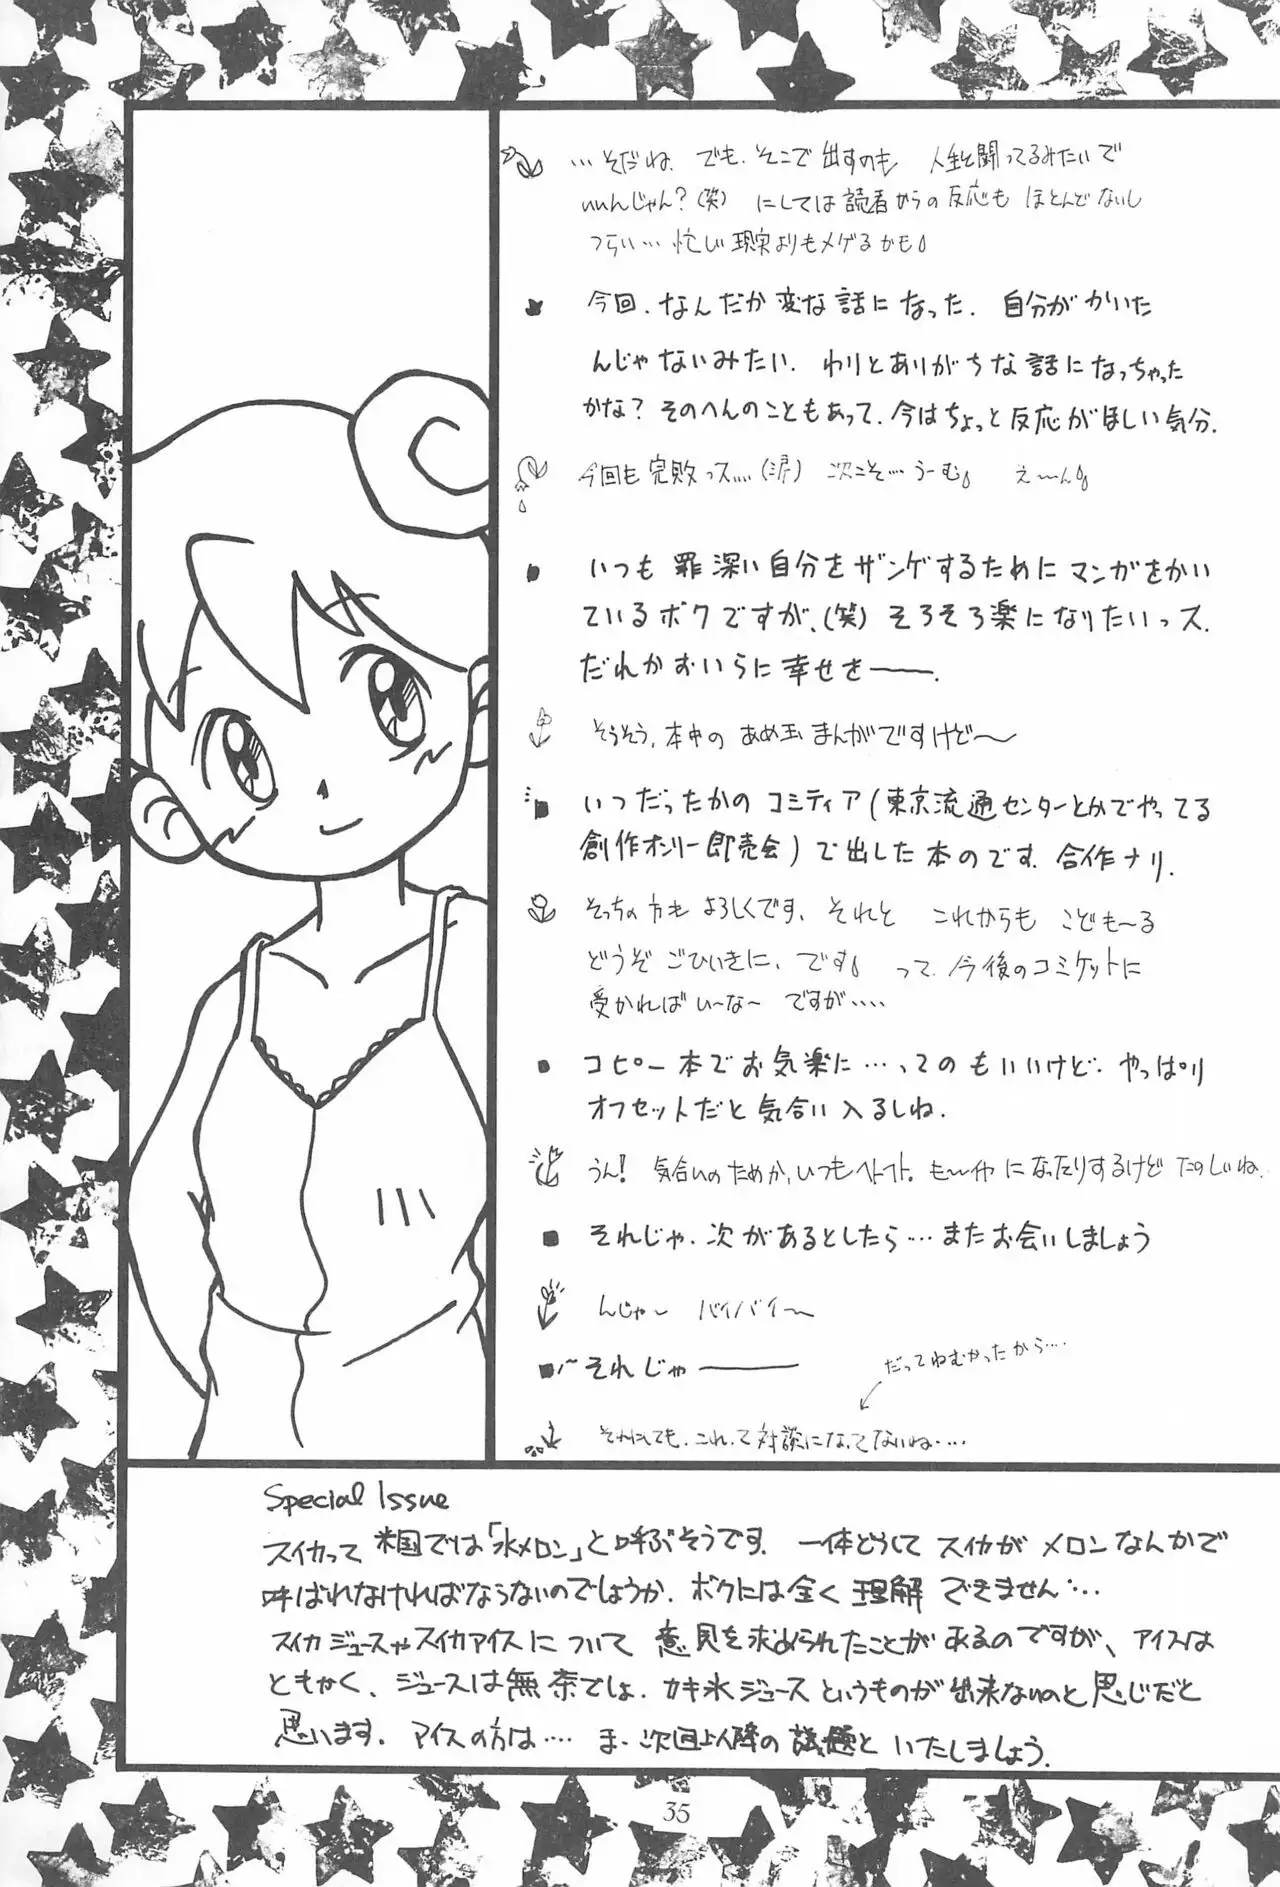 …そだね。でも、そこで出すのも 人生と闘ってるみたいで
いいんじゃん?(笑) にしては読者からの反応も ほとんどないし
つらい… 忙しい現実よりもメゲるかも
今回、なんだか変な話になった。自分がかいた
んじゃないみたい。わりとありがちな話になっちゃった
かな? そのへんのこともあって、今はちょっと反応がほしい気分。
今回も完敗っス…(涙) 次こそ…うーむ え〜ん
いつも罪深い自分をザンゲするためにマンガをかい
ているボクですが、(笑) そろそろ楽になりたいっス。
だれかおいらに幸せを――。
そうそう、本中のあめ玉まんがですけど〜
いつだったかのコミティア(東京流通センターとかでやってる
創作オンリー即売会)で出した本のです。合作ナリ。
そっちの方もよろしくです。それと これからも こども〜る
どうぞごひいきに、です。 って、今後のコミケットに
受かればい〜な〜 ですが….
コピー本でお気楽に…ってのもいいけど、やっぱり
オフセットだと気合い入るしね。
うん! 気合いのためか、いつもヘトヘト。も〜イヤになったりするけどたのしいね。
それじゃ、次があるとしたら…またお会いしましょう
んじゃ〜 バイバイ〜
〜それじゃ――
だってねむかったから…
それにしても、これって対談になってないね….
Special Issue
スイカって米国では「水メロン」と呼ぶそうです。一体どうしてスイカがメロンなんかで
呼ばれなければならないのでしょうか。ボクには全く理解できません…
スイカジュースやスイカアイスについて意見を求められたことがあるのですが、アイスは
ともかく、ジュースは無茶でしょ。カキ氷ジュースというものが出来ないのと思じだと
思います。アイスの方は… ま、次回以降の議題といたしましょう。
35